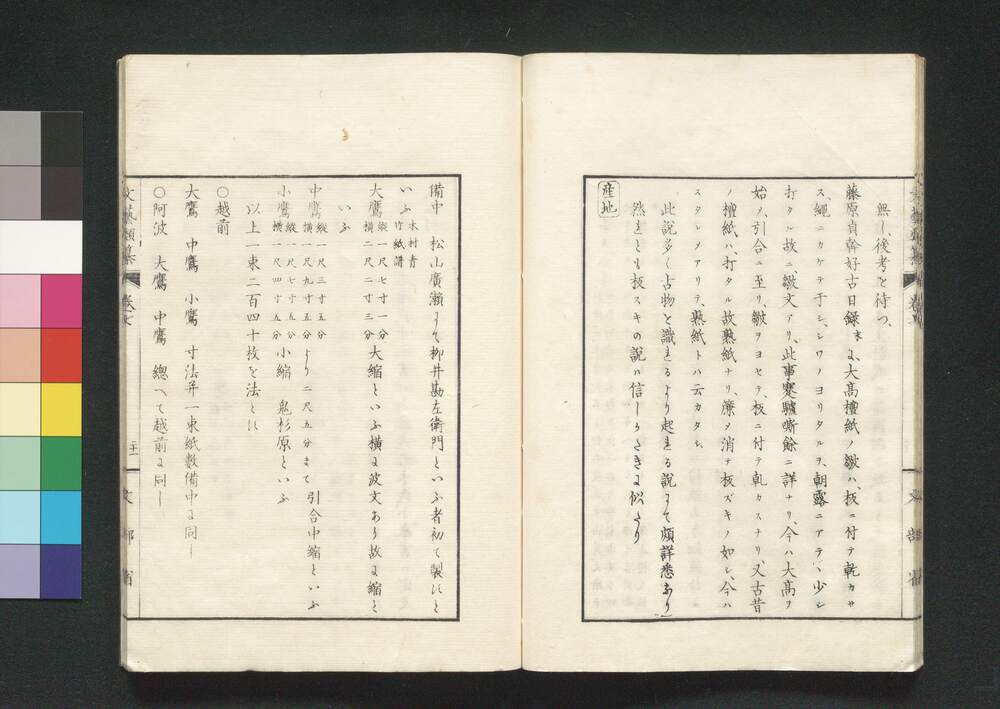 無し、後考を待つ、
藤原貞幹好古日録末に、大高檀紙ノ皺ハ、板ニ付テ乾カサ
ス、縄ニカケテ干シ、シワノヨリタルヲ、朝露ニアテヽ少シ
打タル故ニ、皺文アリ、此事蹇驢嘶餘ニ詳ナリ、今ハ大高ヲ
始ノ、引合ニ至リ、皺ヲヨセテ、板ニ付テ乾カスナリ、又古昔
ノ檀紙ハ、打タル故熟紙ナリ、簾メ消テ板ズキノ如シ、今ハ
スタレメアリテ、熟紙トハ云カタシ、
此説多く古物を識れるより起れる説にて頗詳悉なり
然れとも板スキの説ハ信しかたきに似たり
産地
備中 松山廣瀬にて柳井勘左衛門といふ者初て製すと
いふ 木村青竹紙譜
大鷹 縦一尺七寸一分 横二尺二寸三分 大縮といふ横に波文あり故に縮と
いふ
中鷹 縦一尺三寸五分 横一尺九寸五分 より二尺五分まて 引合中縮といふ
小鷹 縦一尺七寸五分 横一尺四寸五分 小縮 鬼杉原といふ
以上一束二百四十枚を法とす
〇越前
大鷹 中鷹 小鷹 寸法并一束紙数備中に同し
〇阿波 大鷹 中鷹 總へて越前に同し
文藝類纂 巻七
二十一
文部省